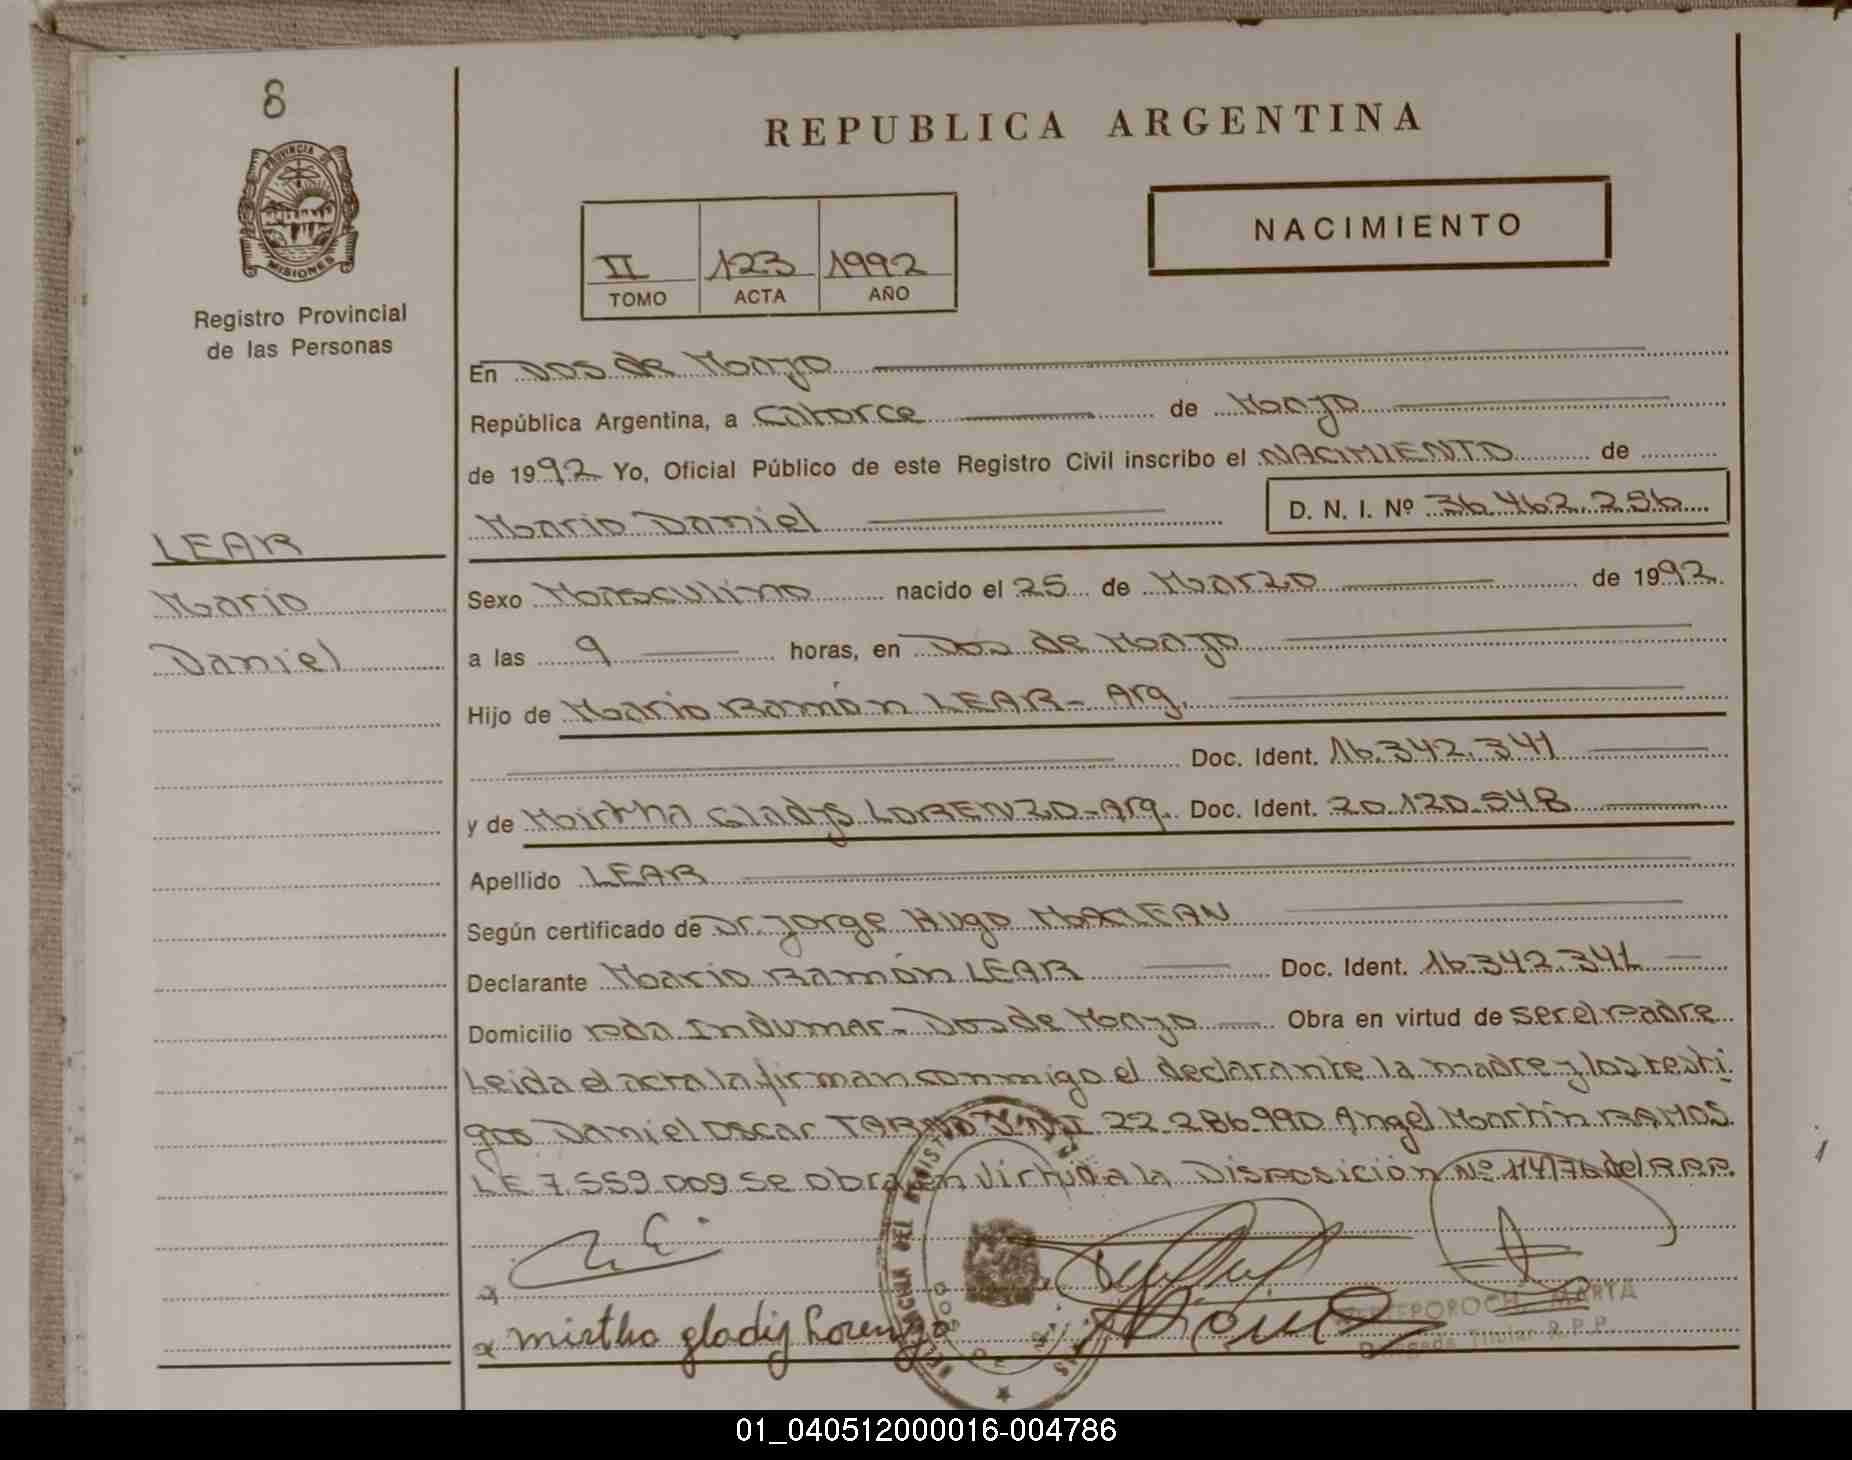 8
PROVINCIA DE
MISIONES
Registro Provincial
de las Personas
REPUBLICA ARGENTINA
NACIMIENTO
II 123 1992
TOMO ACTA AÑO
En Dos de Mayo
República Argentina, a Catorce de Mayo
de 1992 Yo, Oficial Público de este Registro Civil inscribo el NACIMIENTO de
Mario Daniel D. N. I. Nº 36.462.256
LEAR
Mario
Daniel
Sexo Masculino nacido el 25 de Marzo de 1992
a las 9 horas, en Dos de Mayo
Hijo de Mario Ramón LEAR- Arg.
Doc. Ident. 16.342.341
y de Mirtha Gladys LORENZO-Arg. Doc. Ident. 20.120.548
Apellido LEAR
Según certificado de Dr. Jorge Hugo MACLEAN
Declarante Mario Ramón LEAR Doc. Ident. 16.342.341
Domicilio Indumar- Dos de Mayo Obra en virtud de ser el Padre
Leida el acta la firman conmigo el declarante la madre y los testi
gos Daniel Oscar DNI 22.286.990 Angel Martín RAMOS
LE 7.559.009 se obra en virtud a la Disposición Nº 114/76 del R.P.P.
mirtha gladis Lorenzo
MARTA
Titular R.P.P.
01_040512000016-004786